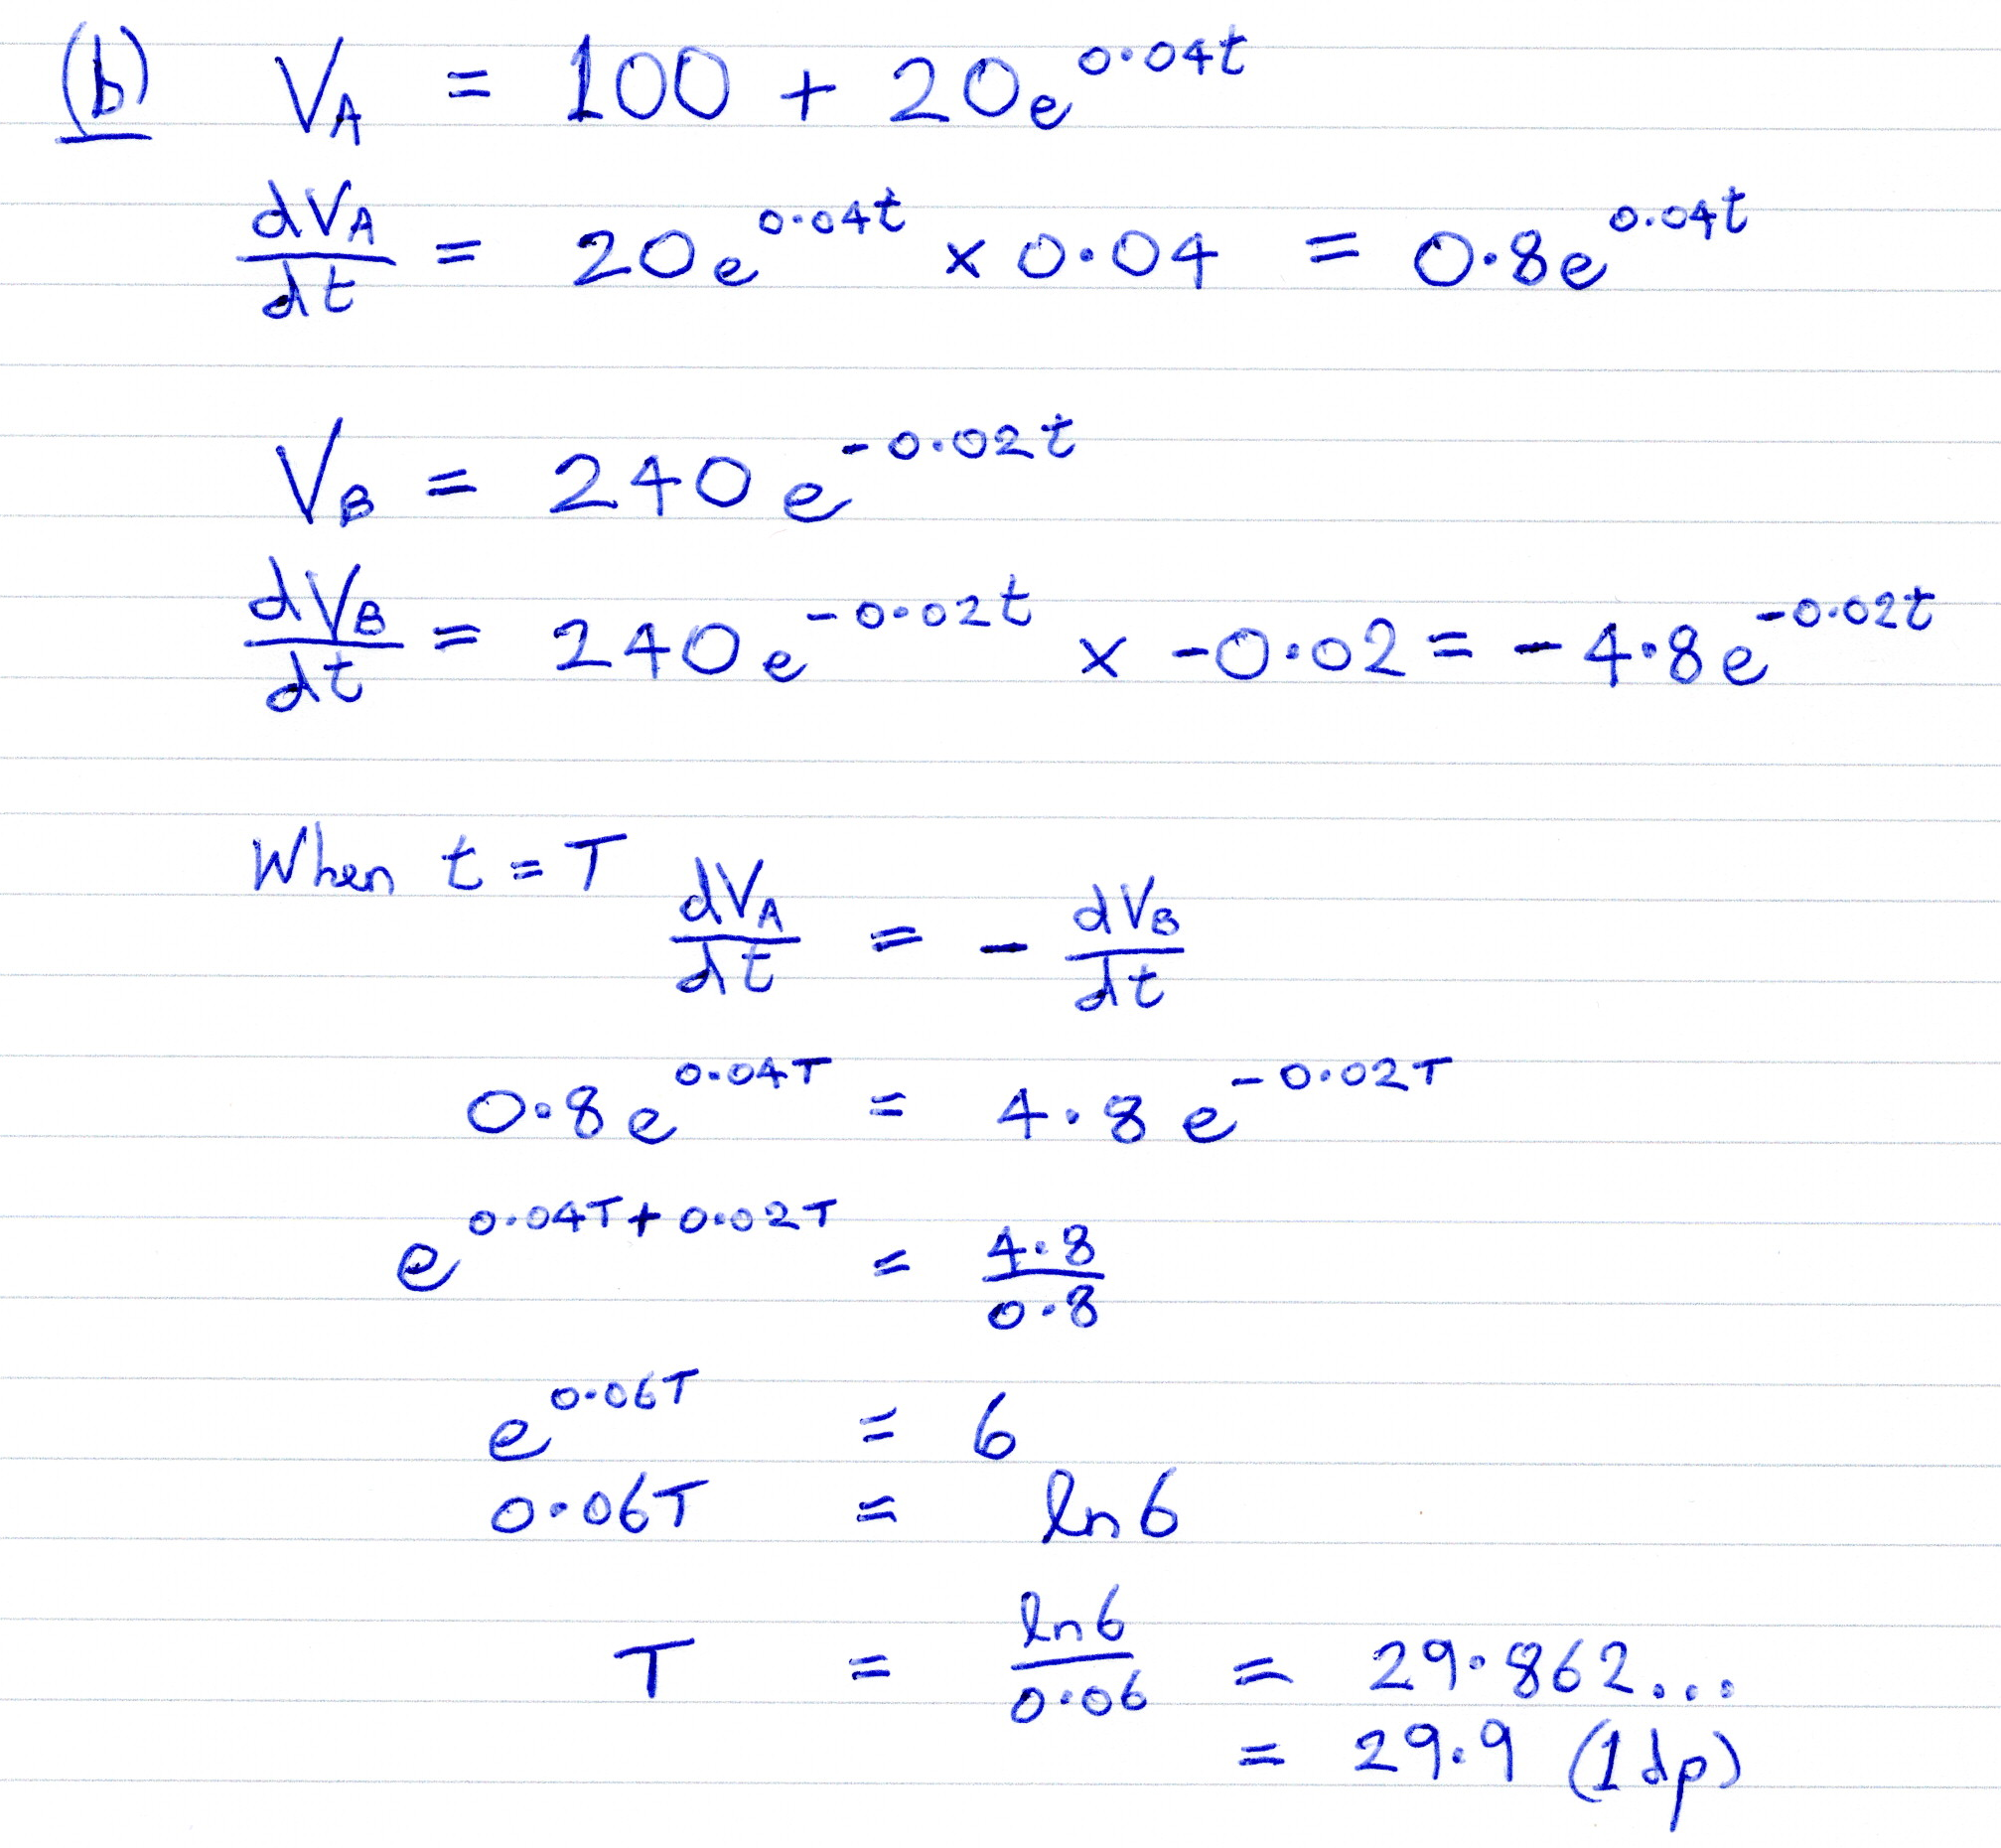 (b) V_A = 100 + 20e^{0.04t}
dV_A/dt = 20e^{0.04t} × 0.04 = 0.8e^{0.04t}
V_B = 240e^{-0.02t}
dV_B/dt = 240e^{-0.02t} × -0.02 = -4.8e^{-0.02t}
When t = T
dV_A/dt = - dV_B/dt
0.8e^{0.04T} = 4.8e^{-0.02T}
e^{0.04T + 0.02T} = 4.8/0.8
e^{0.06T} = 6
0.06T = ln6
T = ln6/0.06 = 29.862...
= 29.9 (1dp)